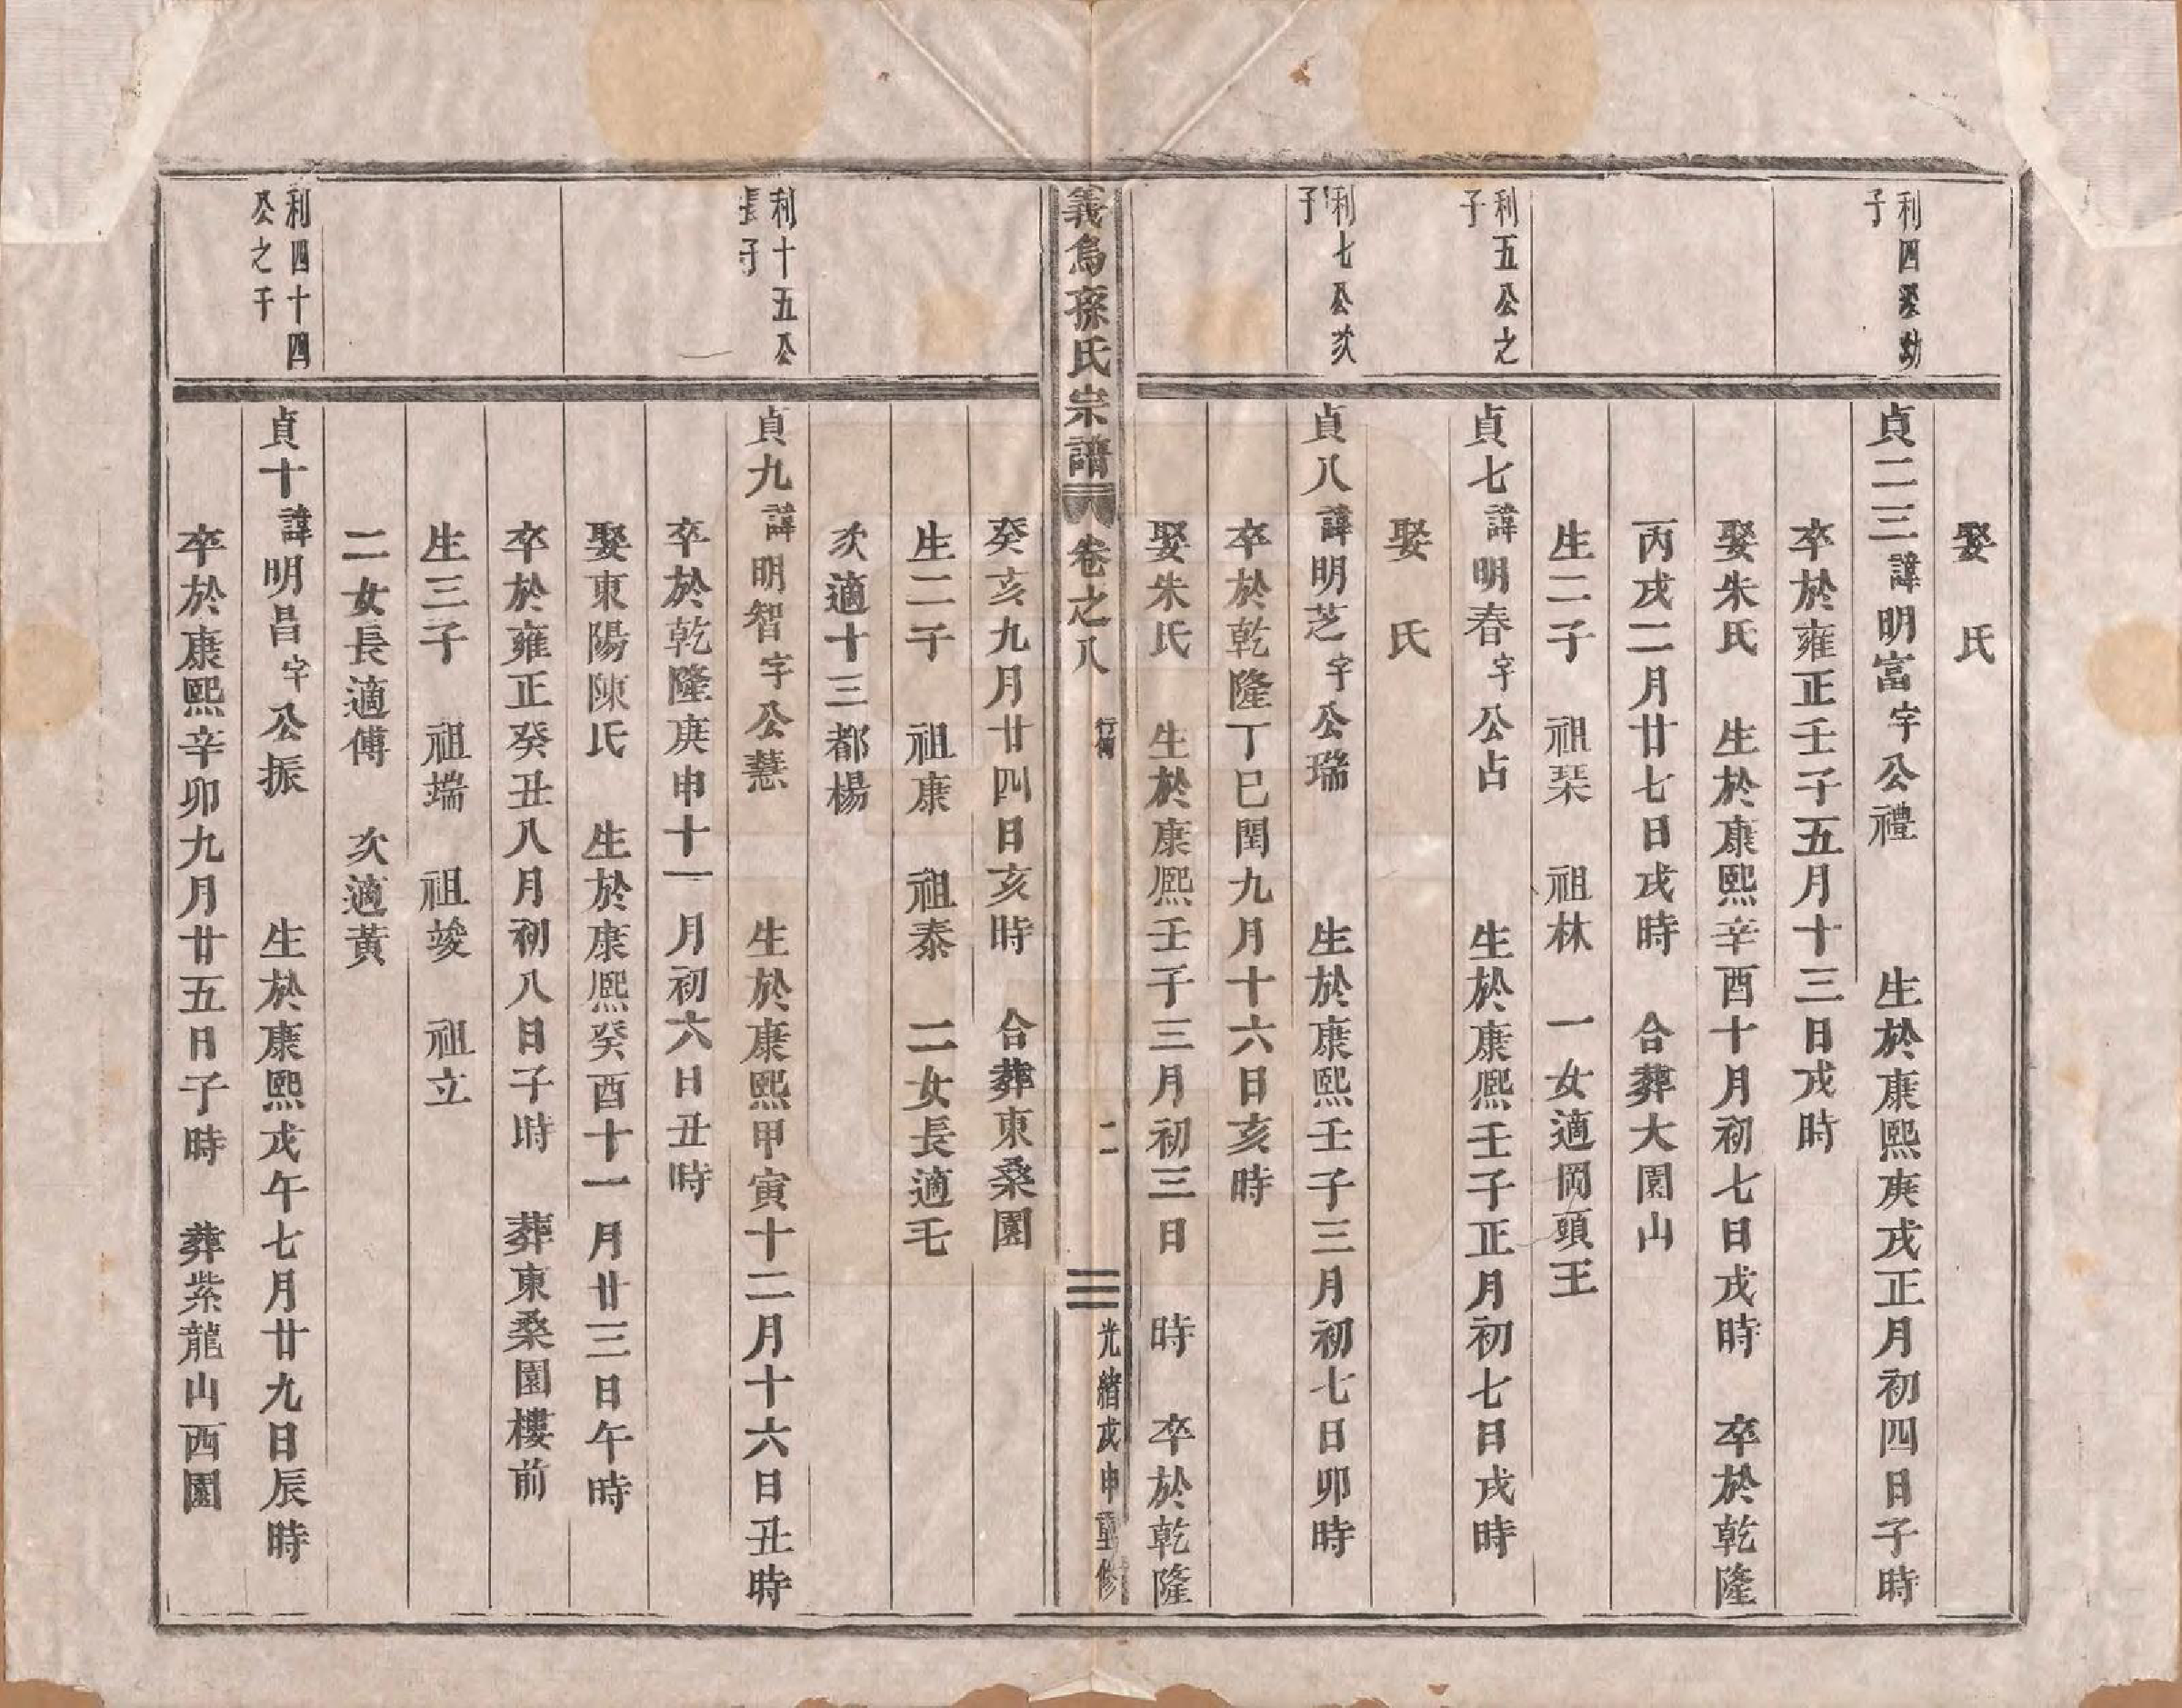 娶　氏
利四公幼子
貞二三諱明富字公禮　生於康熙庚戌正月初四日子時
卒於雍正壬子五月十三日戌時
娶朱氏　生於康熙辛酉十月初七日戌時　卒於乾隆
丙戌二月廿七日戌時　合葬大園山
生二子　祖琹　祖林　一女適岡頭王
利五公之子
貞七諱明春字公占　生於康熙壬子正月初七日戌時
娶　氏
利七公次子
貞八諱明芝字公瑞　生於康熙壬子三月初七日卯時
卒於乾隆丁巳閏九月十六日亥時
娶朱氏　生於康熙壬子三月初三日　時　卒於乾隆
義烏孫氏宗譜　卷之八　行傳　二　光緒戊申重修
癸亥九月廿四日亥時　合葬東桑園
生二子　祖康　祖泰　二女長適毛
次適十三都楊
利十五公長子
貞九諱明智字公慧　生於康熙甲寅十二月十六日丑時
卒於乾隆庚申十一月初六日丑時
娶東陽陳氏　生於康熙癸酉十一月廿三日午時
卒於雍正癸丑八月初八日子時　葬東桑園樓前
生三子　祖瑞　祖竣　祖立
二女長適傅　次適黃
利四十四公之子
貞十諱明昌字公振　生於康熙戊午七月廿九日辰時
卒於康熙辛卯九月廿五日子時　葬紫龍山西園